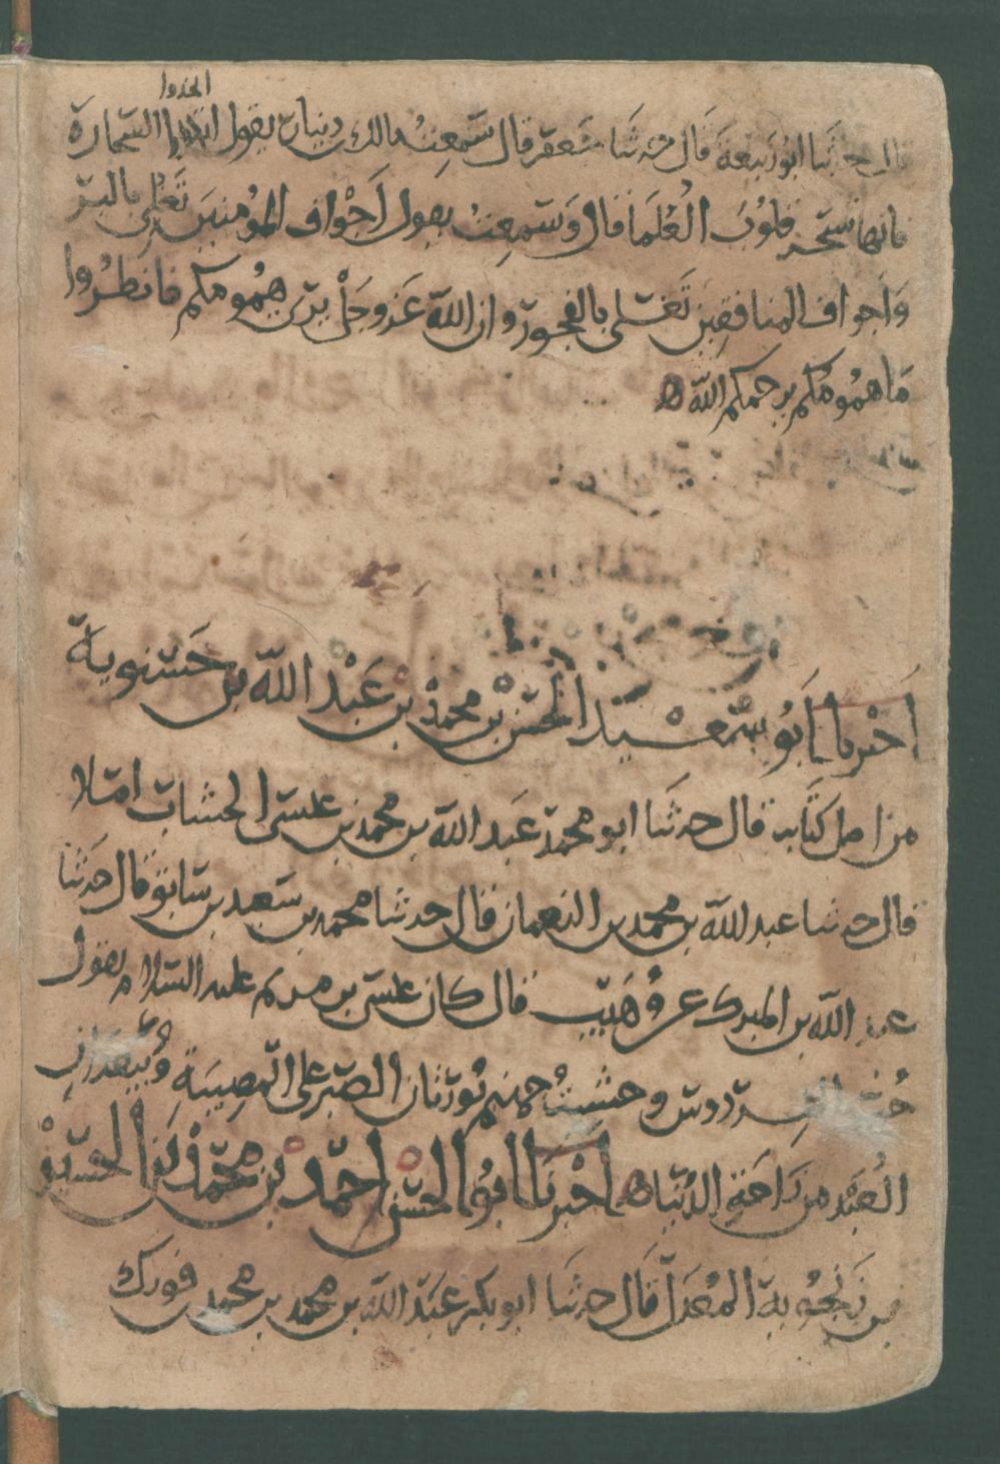 احذروا
قال حدثنا ابو ربيعة قال حدثنا جعفر قال سمعت مالك دينار يقول اتقوا السحارة
فانها تسحر قلوب العلما قال وسمعت يقول اجواف المومنين تغلي بالبر
واجواف المنافقين تغلي بالفجور وان الله عز وجل يرى همومكم فانظروا
ما همومكم يرحمكم الله
اخبرنا ابو سعيد الحسن بن محمد بن عبد الله بن حسنوية
من اصل كتابه قال حدثنا ابو محمد عبد الله بن محمد بن عيسى الخشاب املا
قال حدثنا عبد الله بن محمد بن النعمان قال حدثنا محمد بن سعيد بن سابق قال حدثنا
عبد الله بن المبرك عن وهيب قال كان عيسى بن مريم عليه السلام يقول
حب الفردوس وخشية جهنم يورثان الصبر على المصيبة ويبعدان
العبد من راحة الدنيا اخبرنا ابو الحسن احمد بن محمد بن الحسين
بن زنجويه المعدل قال حدثنا ابو بكر عبد الله بن محمد بن محمد فورك